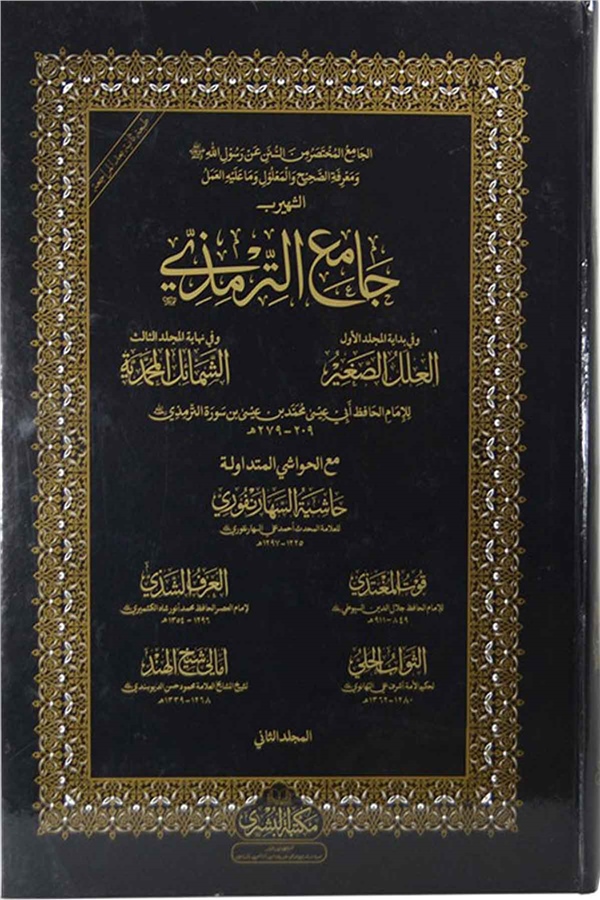 الجامع المختصر من السنن عن رسول الله ﷺ
ومعرفة الصحيح والمعلول وما عليه العمل
الشهير بـ
جامع الترمذي
وفي بداية المجلد الأول
العلل الصغير
وفي نهاية المجلد الثالث
الشمائل المحمدية
للإمام الحافظ أبي عيسى محمد بن عيسى بن سورة الترمذي
٢٠٩ - ٢٧٩هـ
مع الحواشي المتداولة
حاشية السهارنفوري
للعلامة المحدث أحمد علي السهارنفوري
١٢٢٥ - ١٢٩٧هـ
قوت المغتذي
للإمام الحافظ جلال الدين السيوطي
٨٤٩ - ٩١١هـ
العرف الشذي
لإمام العصر الحافظ محمد أنور شاه الكشميري
١٢٩٦ - ١٣٥٤هـ
الثواب الحلي
لحكيم الأمة أشرف علي التهانوي
١٢٨٠ - ١٣٦٢هـ
أمالي شيخ الهند
لشيخ المشائخ العلامة محمود حسن الديوبندي
١٢٦٨ - ١٣٣٩هـ
المجلد الثاني
مكتبة البشرى